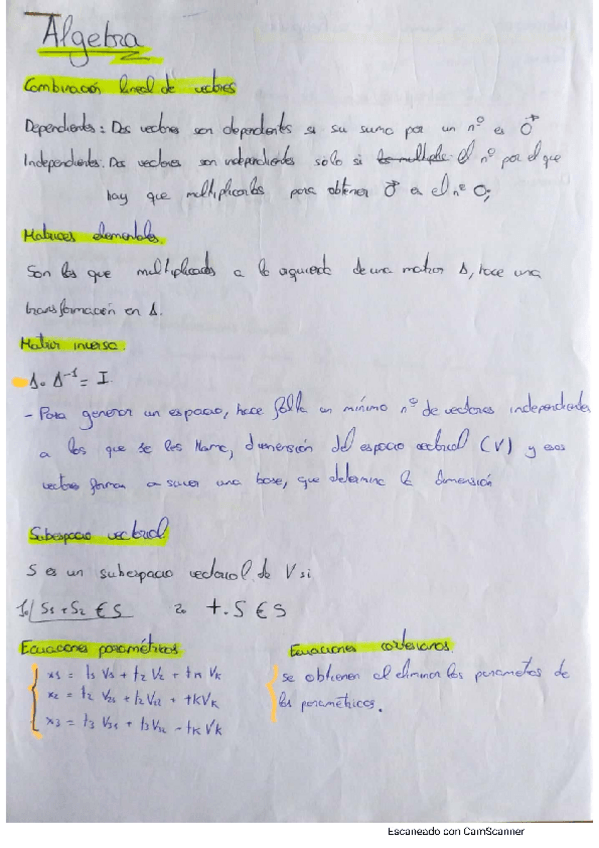 Algebra
Combinación lineal de vectores
Dependientes: Dos vectores son dependientes si su suma por un nº es 0
Independientes. Dos vectores son independientes solo si el nº por el que
hay que multiplicarlos para obtener 0 es el nº 0;
Matrices elementales.
Son las que multiplicadas a la izquierda de una matriz A, hace una
transformación en A.
Matriz inversa.
A · A⁻¹ = I
- Para generar un espacio, hace falta un mínimo nº de vectores independientes
a los que se les llama, dimensión del espacio vectorial (V) y esos
vectores forman a su vez una base, que determina la dimensión
Subespacio vectorial
S es un subespacio vectorial de V si
1o/ S₁ + S₂ € S 2o t . S € S
Ecuaciones paramétricas Ecuaciones cartesianas.
x₁ = t₁ V₁ + t₂ V₂ + tₙ Vₖ se obtienen al eliminar los parametros de
x₂ = t₂ V₂₁ + t₂ V₁₂ + tKVₖ las paraméticas.
x₃ = t₃ V₃₁ + t₃ V₃₂ - tₖ Vₖ
Escaneado con CamScanner